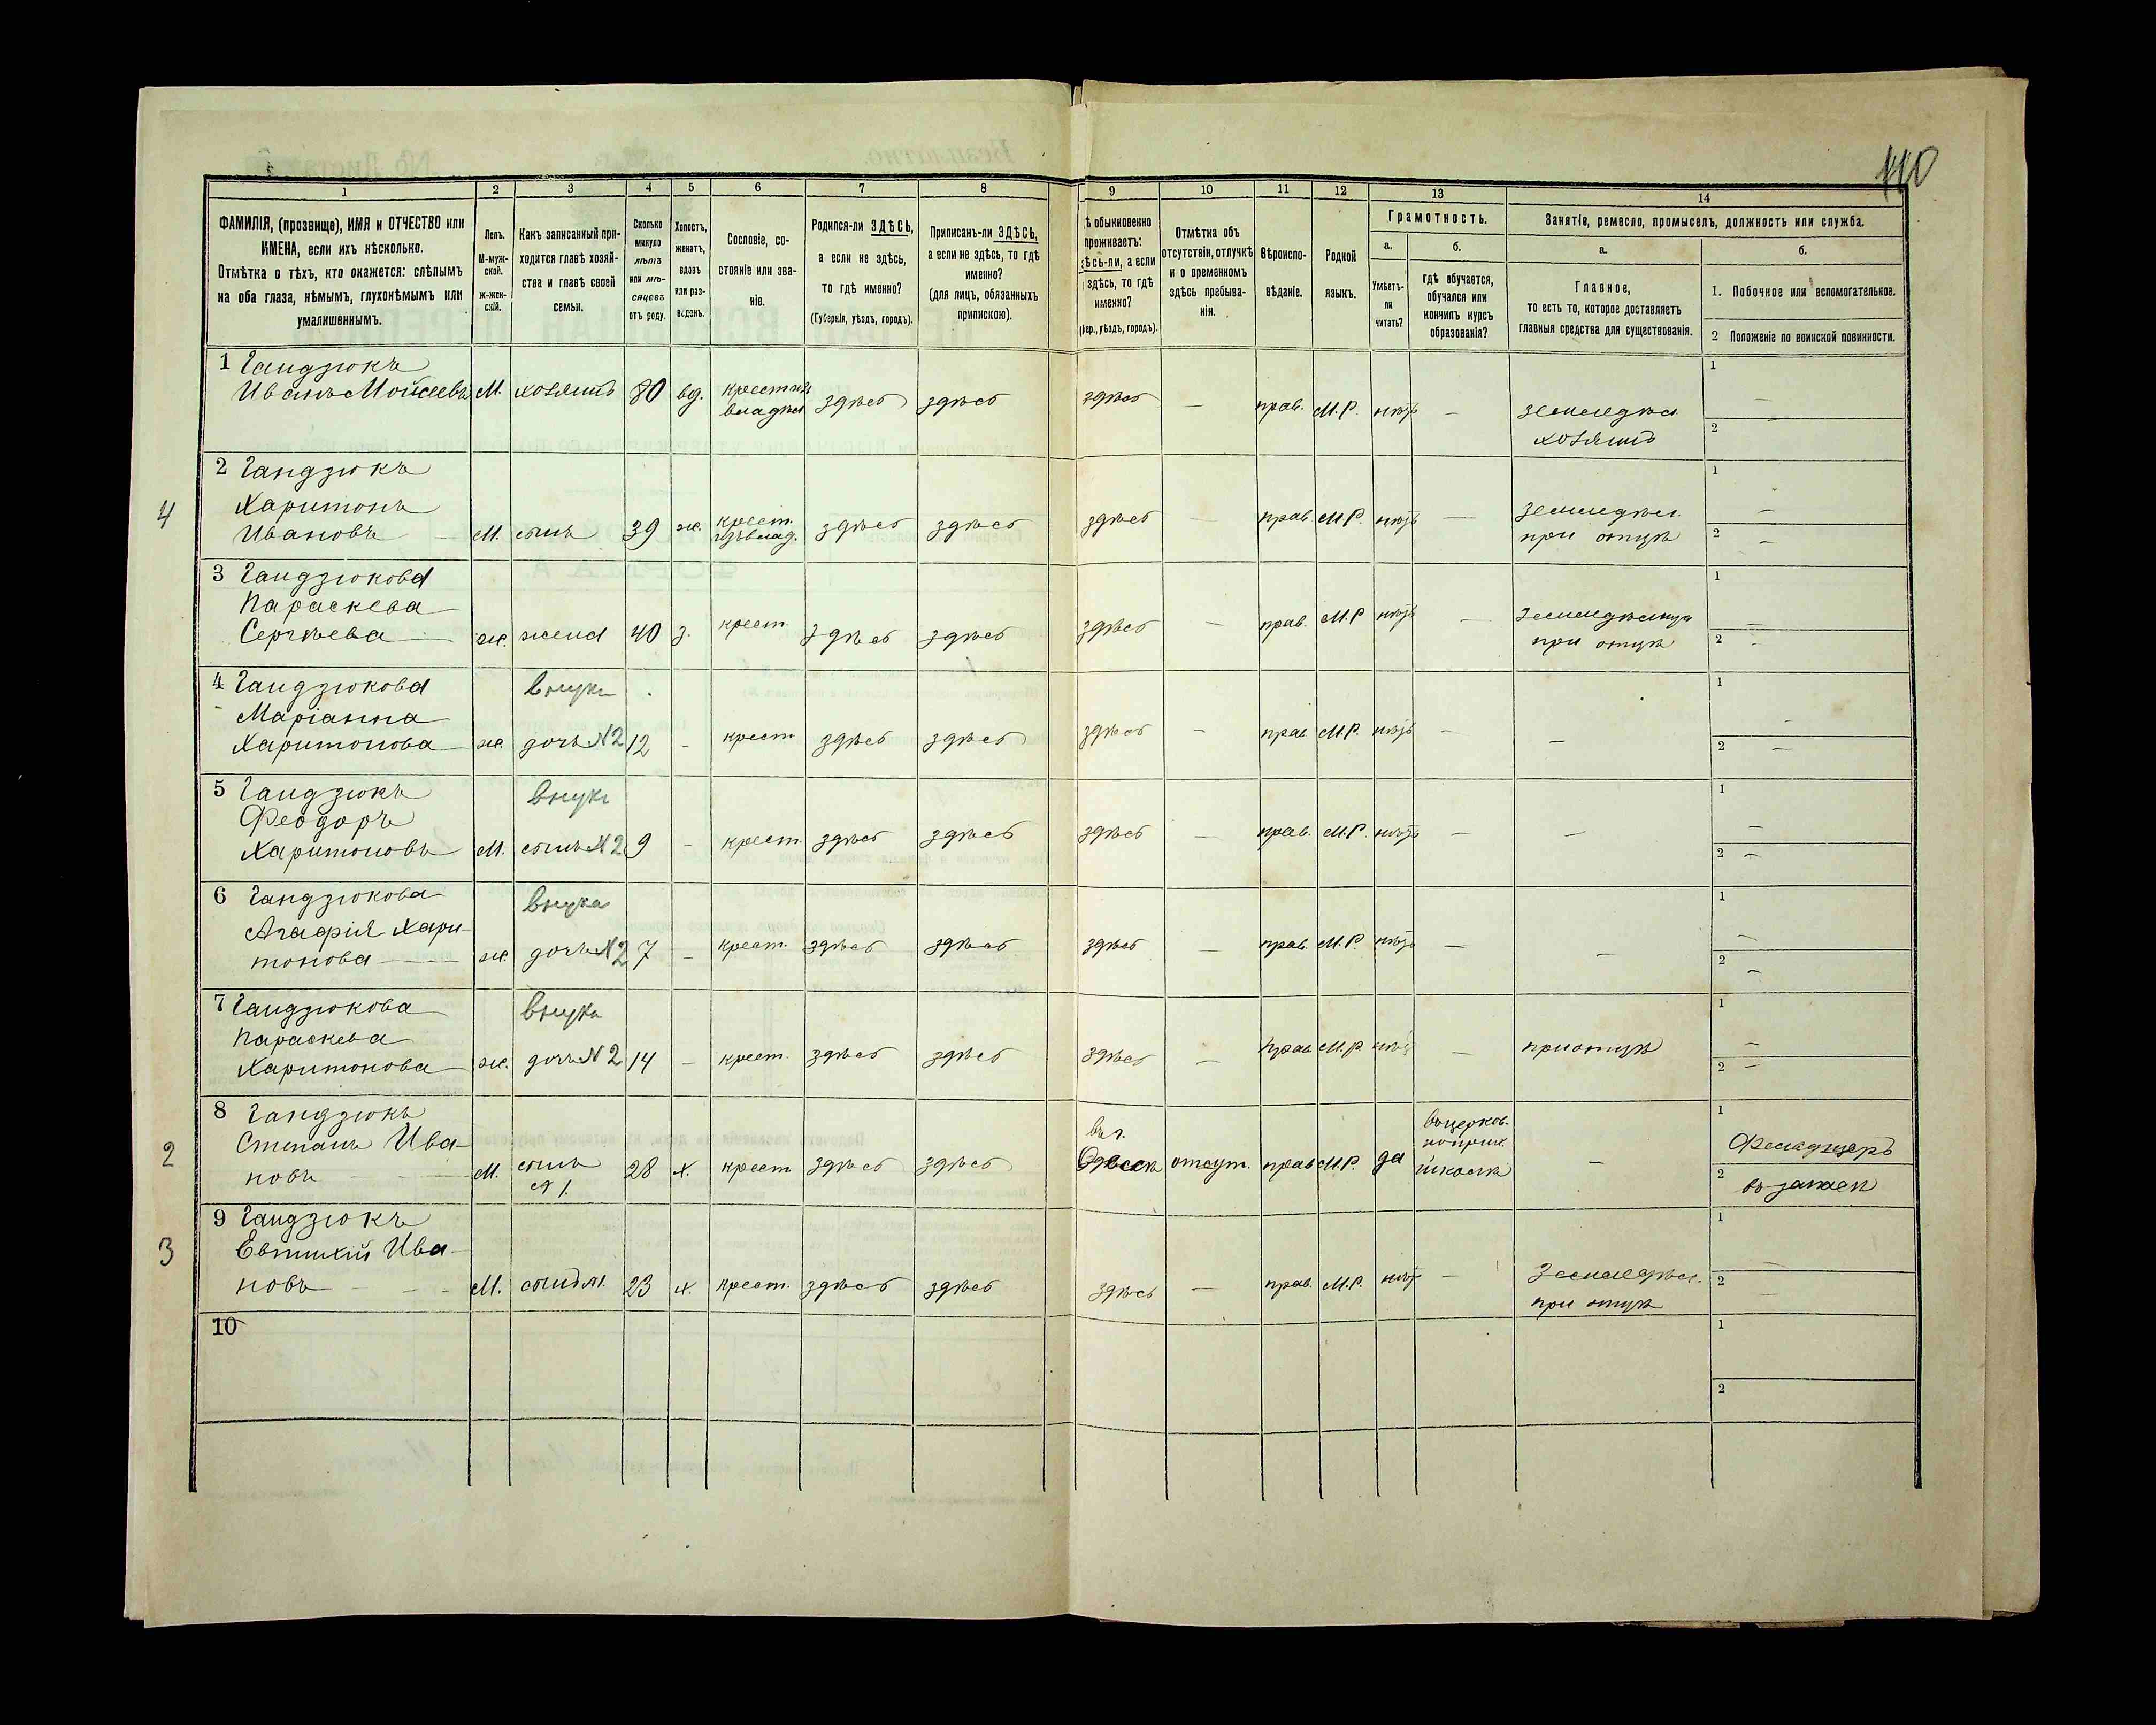 110
1 2 3 4 5 6 7 8 9 10 11 12 13 14
ФАМИЛІЯ, (прозвище), ИМЯ и ОТЧЕСТВО или
ИМЕНА, если ихъ нѣсколько.
Отмѣтка о тѣхъ, кто окажется: слѣпымъ
на оба глаза, нѣмымъ, глухонѣмымъ или
умалишеннымъ.
Полъ.
М-муж-
ской.
ж-жен-
скій.
Какъ записанный при-
ходится главѣ хозяй-
ства и главѣ своей
семьи.
Сколько
минуло
лѣтъ
или мѣ-
сяцевъ
отъ роду.
Холостъ,
женатъ,
вдовъ
или раз-
веденъ.
Сословіе, со-
стояніе или зва-
ніе.
Родился-ли ЗДѢСЬ,
а если не здѣсь,
то гдѣ именно?
(Губернія, уѣздъ, городъ).
Приписанъ-ли ЗДѢСЬ,
а если не здѣсь, то гдѣ
именно?
(для лицъ, обязанныхъ
припискою).
ѣ обыкновенно
проживаетъ:
ѣсь-ли, а если
здѣсь, то гдѣ
именно?
бер., уѣздъ, городъ).
Отмѣтка объ
отсутствіи, отлучкѣ
и о временномъ
здѣсь пребыва-
ніи.
Вѣроиспо-
вѣданіе.
Родной
языкъ.
Грамотность.
а. б.
Умѣетъ-
ли
читать?
гдѣ обучается,
обучался или
кончилъ курсъ
образованія?
Занятія, ремесло, промыселъ, должность или служба.
а. б.
Главное,
то есть то, которое доставляетъ
главныя средства для существованія.
1. Побочное или вспомогательное.
2 Положеніе по воинской повинности.
1 Гандзюкъ
Иванъ Мойсеевъ М. хозяинъ 80 вд. здѣсь здѣсь здѣсь — прав. М.Р. —
земледѣл.
хозяинъ
1 —
2 —
4
2 Гандзюкъ
Харитонъ
Ивановъ М. сынъ 39 ж. крест. здѣсь здѣсь здѣсь — прав. М.Р. —
земледѣл.
при отцѣ
1 —
2 —
3 Гандзюкова
Параскева
Сергѣева ж. жена 40 з. крест. здѣсь здѣсь здѣсь — прав. М.Р. —
при отцѣ
1 —
2 -
4 Гандзюкова
Маріанна
Харитонова ж.
внука
дочь №2 12 - крест. здѣсь здѣсь здѣсь — прав. М.Р. — —
1 —
2 —
5 Гандзюкъ
Феодоръ
Харитоновъ М.
внукъ
сынъ №2 9 - крест. здѣсь здѣсь здѣсь — прав. М.Р. — —
1 —
2 —
6 Гандзюкова
Агафія Хари-
тонова ж.
внука
дочь №2 7 - крест. здѣсь здѣсь здѣсь — прав. М.Р. — —
1 —
2 —
7 Гандзюкова
Параскева
Харитонова ж.
внука
дочь №2 14 - крест. здѣсь здѣсь здѣсь — прав. М.Р. — при отцѣ
1 —
2 —
2
8 Гандзюкъ
Степанъ Ива-
новъ М. сынъ 28 х. крест. здѣсь здѣсь
въ г.
Одессѣ отсут. прав. М.Р. да
школѣ
—
1
2
въ запасѣ
3
9 Гандзюкъ
Евтихій Ива-
новъ М. 23 х. крест. здѣсь здѣсь здѣсь — прав. М.Р. —
земледѣл.
при отцѣ
1 —
2 —
10
1
2